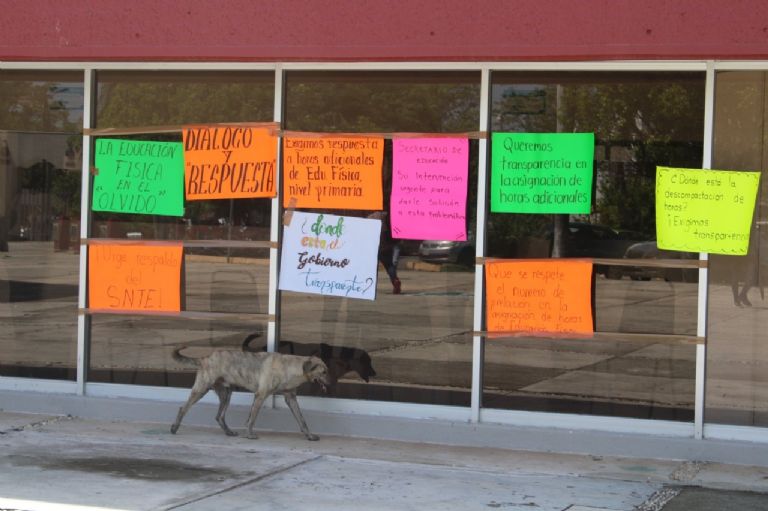 LA EDUCACIÓN
FISICA
EN EL
"OLVIDO"
DIALOGO
Y
"RESPUESTA"
Exigimos respuesta
a horas adicionales
de Edu Física,
nivel primaria.
SECRETARIO DE
EDUCACIÓN
Su intervención
urgente para
darle Solución
a esta problemática
Queremos
transparencia en
la asignación de
horas adicionales
¿Dónde esta la
descompactacion de
horas?
¡Exigimos
transparencia!
¡Urge respaldo
del
SNTE!
¿donde
esta el
Gobierno
transparente?
Que se respete
el número de
prelación en la
asignación de
horas de
Educación física